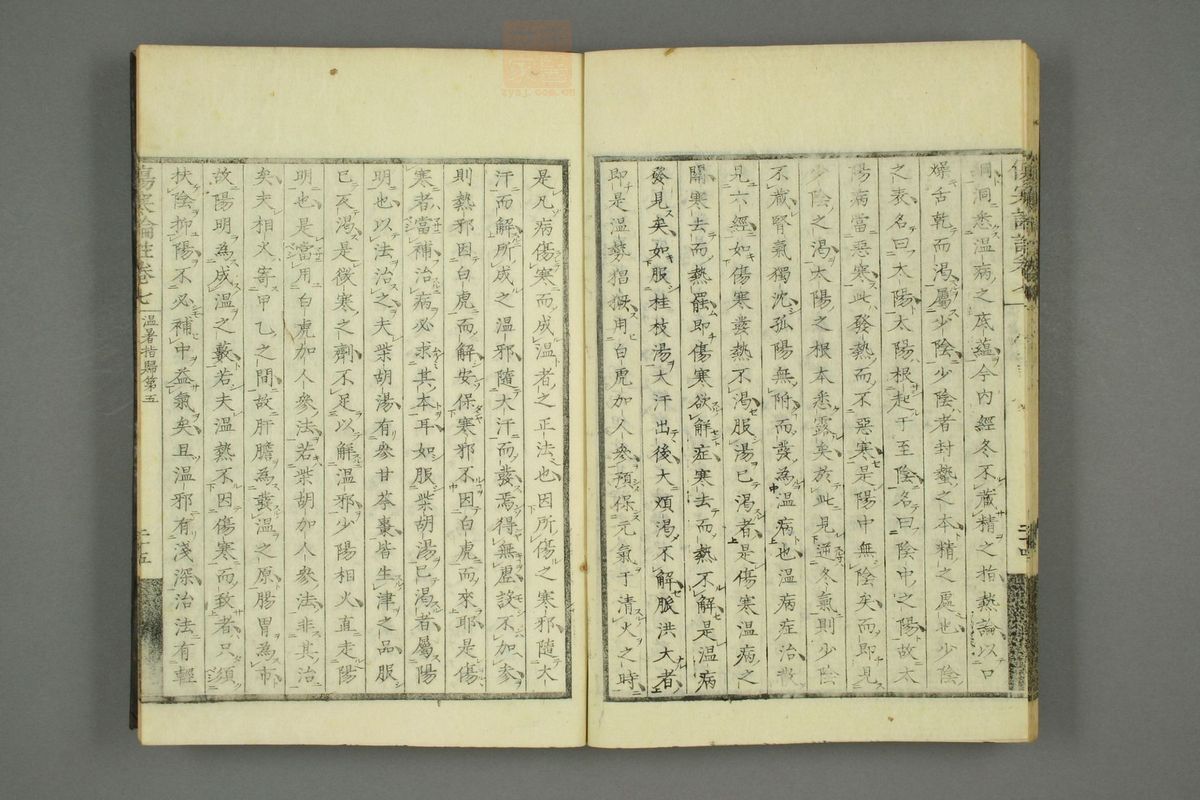 洞悉溫病之底蘊今內經冬不藏精之指熱論以口
燥舌乾而渴屬少陰少陰者封蟄之本精之處也少陰
之表名曰太陽太陽根起于至陰名曰陰中之陽故太
陽病當惡寒此發熱而不惡寒是陽中無陰矣而即見
少陰之渴太陽之根本悉露矣於此見逆冬氣則少陰
不藏腎氣獨沈孤陽無附而發為溫病也溫病症治散
見六經如傷寒發熱不渴服湯已渴者是傷寒溫病之
關寒去而熱罷即傷寒欲解症寒去而熱不解是溫病
發見矣如服桂枝湯大汗出後大煩渴不解脈洪大者
即是溫勢猖獗用白虎加人參預保元氣于清火之時
是凡病傷寒而成溫者之正法也因所傷之寒邪隨大
汗而解所成之溫邪隨大汗而發焉得無虛設不加參
則熱邪因白虎而解安保寒邪不因白虎而來耶是傷
寒者當補治病必求其本耳如服柴胡湯已渴者屬陽
明也以法治之夫柴胡湯有參甘芩棗皆生津之品服
已反渴是微寒之劑不足以解溫邪少陽相火直走陽
明也是當用白虎加人參法若柴胡加人參法非其治
矣夫相火寄甲乙之間故肝膽為發溫之原腸胃為市
故陽明為成溫之藪若夫溫熱不因傷寒而致者只須
扶陰抑陽不必補中益氣矣且溫邪有淺深治法有輕
傷寒論註卷七
溫暑指歸第五
二十五
zysj.com.cn